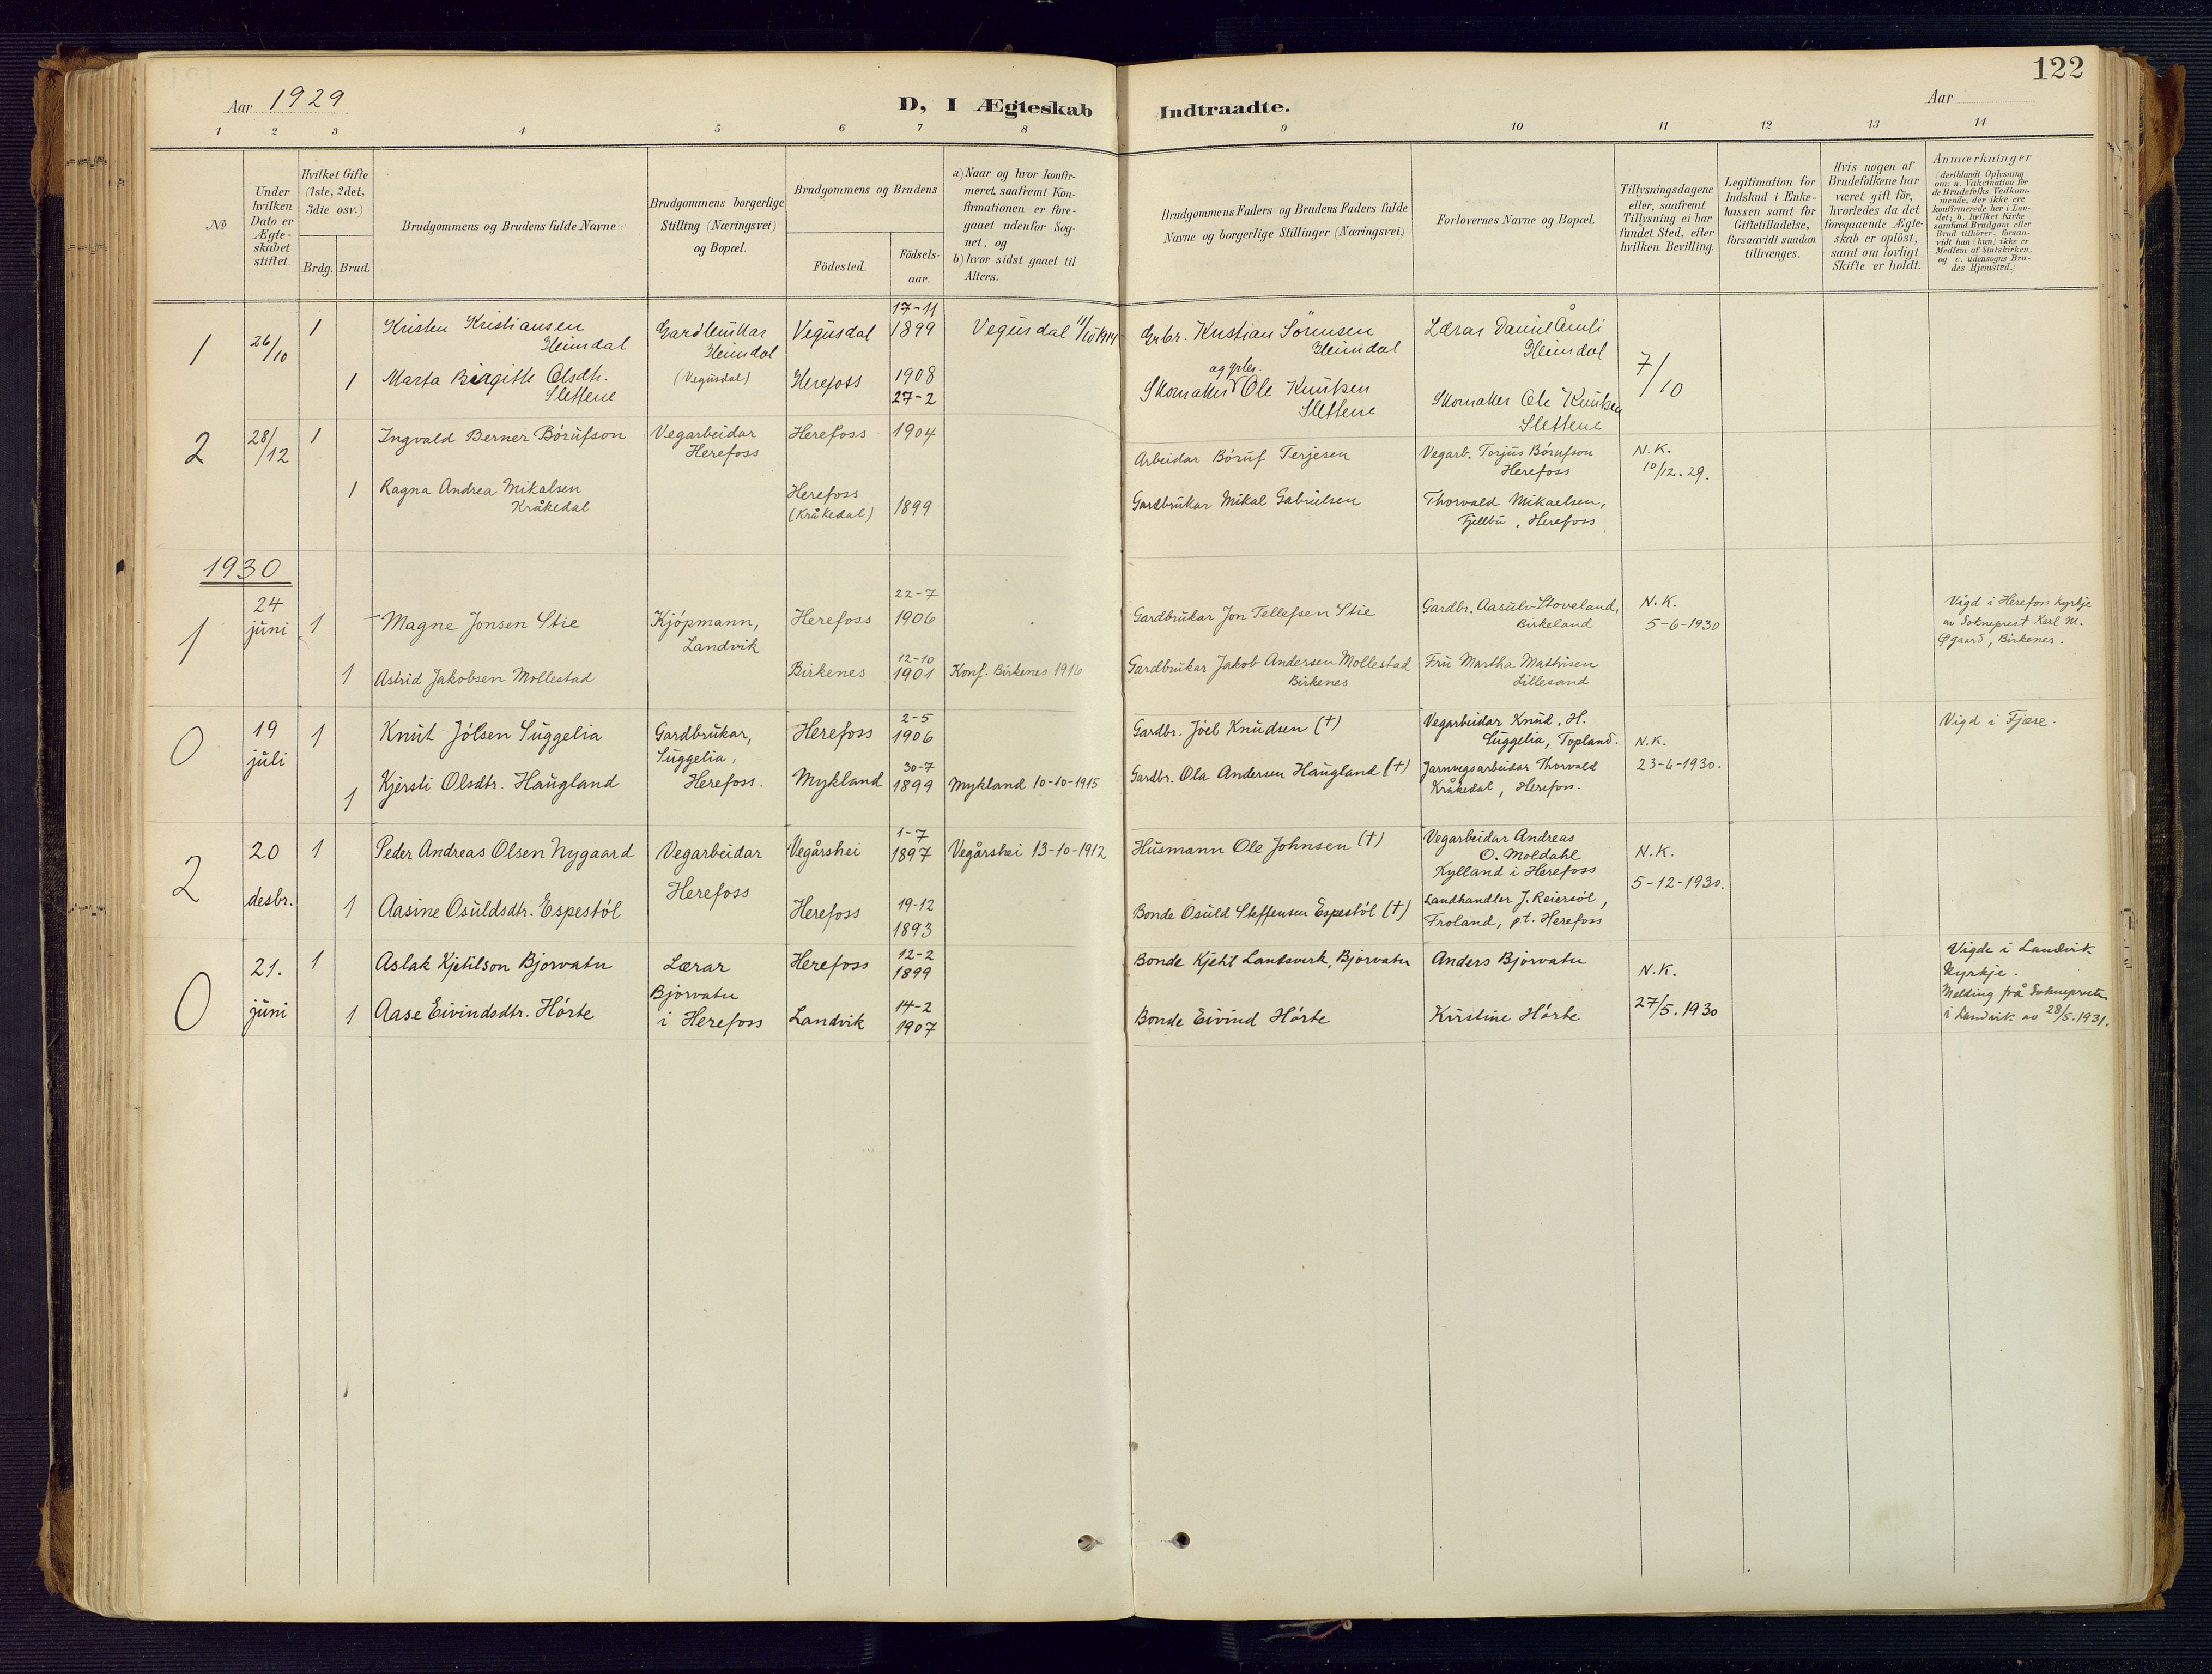 122
Aar 1929
D, I Ægteskab Indtraadte.
Aar
1 2 3 4 5 6 7 8 9 10 11 12 13 14
No
Under hvilken Dato er Ægte-skabet stiftet.
Hvilket Gifte (1ste, 2det, 3die osv.)
Brdg. Brud.
Brudgommens og Brudens fulde Navne
Brudgommens borgerlige Stilling (Næringsvei) og Bopæl.
Brudgommens og Brudens
Födested.
Födsels-aar.
a) Naar og hvor konfir-meret, saafremt Kon-firmationen er fore-gaaet udenfor Sog-net, og
b) hvor sidst gaaet til Alters.
Brudgommens Faders og Brudens Faders fulde Navne og borgerlige Stillinger (Næringsvei)
Forlovernes Navne og Bopæl.
Tillysningsdagene eller, saafremt Tillysning ei har fundet Sted, efter hvilken Bevilling.
Legitimation for Indskud i Enke-kassen samt for Giftetilladelse, forsaavidt saadan tiltrænges.
Hvis nogen af Brudefolkene har været gift før, hvorledes da det foregaaende Ægte-skab er oplöst, samt om lovligt Skifte er holdt.
Anmærkninger (deriblandt Oplysning om: a. Vakcination for de Brudefolks Vedkom-mende, der ikke ere konfirmerede her i Lan-det; b. hvilket Kirke-samfund Brudgom eller Brud tilhörer, forsaa-vidt han (hun) ikke er Medlem af Statskirken, og c. udensogns Bru-des Hjemsted.)
1 26/10 1 Kristen Kristiansen Heimdal
Gardbrukar Heimdal (Vegusdal)
Vegusdal 17-11 1899
Vegusdal 11/10 1914
Grbr. Kristian Sörensen Heimdal
Lærar Daniel Åmli Heimdal
7/10
1 Marta Birgitte Olsdtr. Slettene
Herefoss 1908 27-2
Skomaker og grbr. Ole Knutsen Slettene
Skomaker Ole Knutsen Slettene
2 28/12 1 Ingvald Berner Börufson
Vegarbeidar Herefoss
Herefoss 1904
Arbeidar Böruf Terjesen
Vegarb. Torjus Börufson Herefoss
N.K. 10/12. 29.
1 Ragna Andrea Mikalsen Kråkedal
Herefoss (Kråkedal) 1899
Gardbrukar Mikal Gabrielsen
Thorvald Mikaelsen, Fjellbu, Herefoss
1930
1 24 juni 1 Magne Jonsen Stie
Kjöpmann, Landvik
Herefoss 22-7 1906
Gardbrukar Jon Tellefsen Stie
Gardbr. Aasulv Stoveland, Birkeland
N.K. 5-6-1930
Vigd i Herefoss kyrkje av Sokneprest Karl M. Øgaard, Birkenes.
1 Astrid Jakobsen Mollestad
Birkenes 12-10 1901
Konf. Birkenes 1916
Gardbrukar Jakob Andersen Mollestad Birkenes
Fru Martha Mathisen Lillesand
0 19 juli 1 Knut Jölsen Suggelia
Gardbrukar, Suggelia, Herefoss.
Herefoss 2-5 1906
Gardbr. Jöel Knudsen (†)
Vegarbeidar Knud. H. Suggelia, Topland.
N.K. 23-6-1930.
Vigd i Fjære.
1 Kjersti Olsdtr. Haugland
Mykland 30-7 1899
Mykland 10-10-1915
Gardbr. Ola Andersen Haugland (†)
Jarnvegsarbeidar Thorvald Kråkedal, Herefoss.
2 20 desbr. 1 Peder Andreas Olsen Nygaard
Vegarbeidar Herefoss
Vegårshei 1-7 1897
Vegårshei 13-10-1912
Husmann Ole Johnsen (†)
Vegarbeidar Andreas O. Moldahl Kylland i Herefoss
N.K. 5-12-1930.
1 Aasine Osuldsdtr. Espestöl
Herefoss 19-12 1893
Bonde Osuld Steffensen Espestöl (†)
Landhandler J. Reiersöl, Froland, pt. Herefoss
0 21. juni 1 Aslak Kjetilson Bjorvatn
Lærar Bjorvatn i Herefoss
Herefoss 12-2 1899
Bonde Kjetil Landsverk, Bjorvatn
Anders Bjorvatn
N.K. 27/5. 1930
Vigde i Landvik kyrkje. Melding frå Soknepresten i Landvik av 28/5. 1931.
1 Aase Eivindsdtr. Hörte
Landvik 14-2 1907
Bonde Eivind Hörte
Kristine Hörte